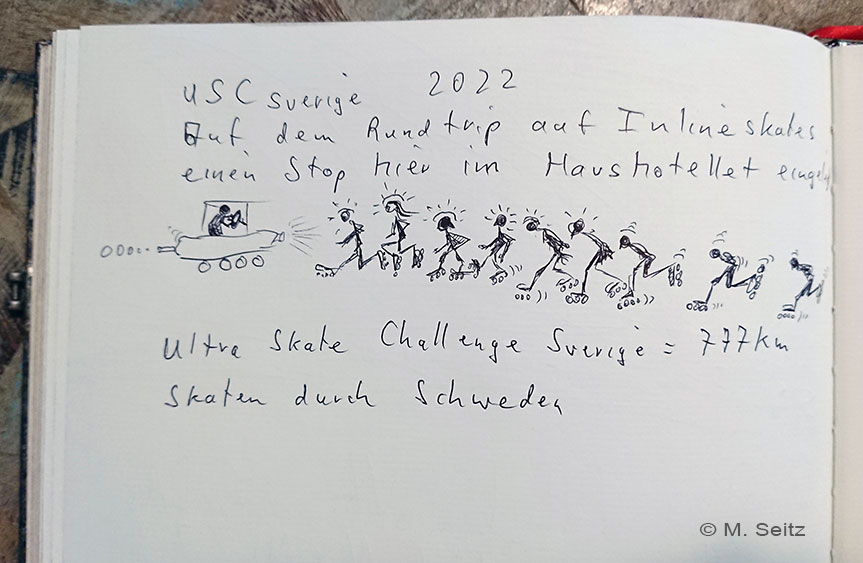 USC Sverige 2022
Auf dem Rundtrip auf Inlineskates
einen Stop hier im Haushotellet
Ultra Skate Challenge Sverige = 777km
Skaten durch Schweden
© M. Seitz